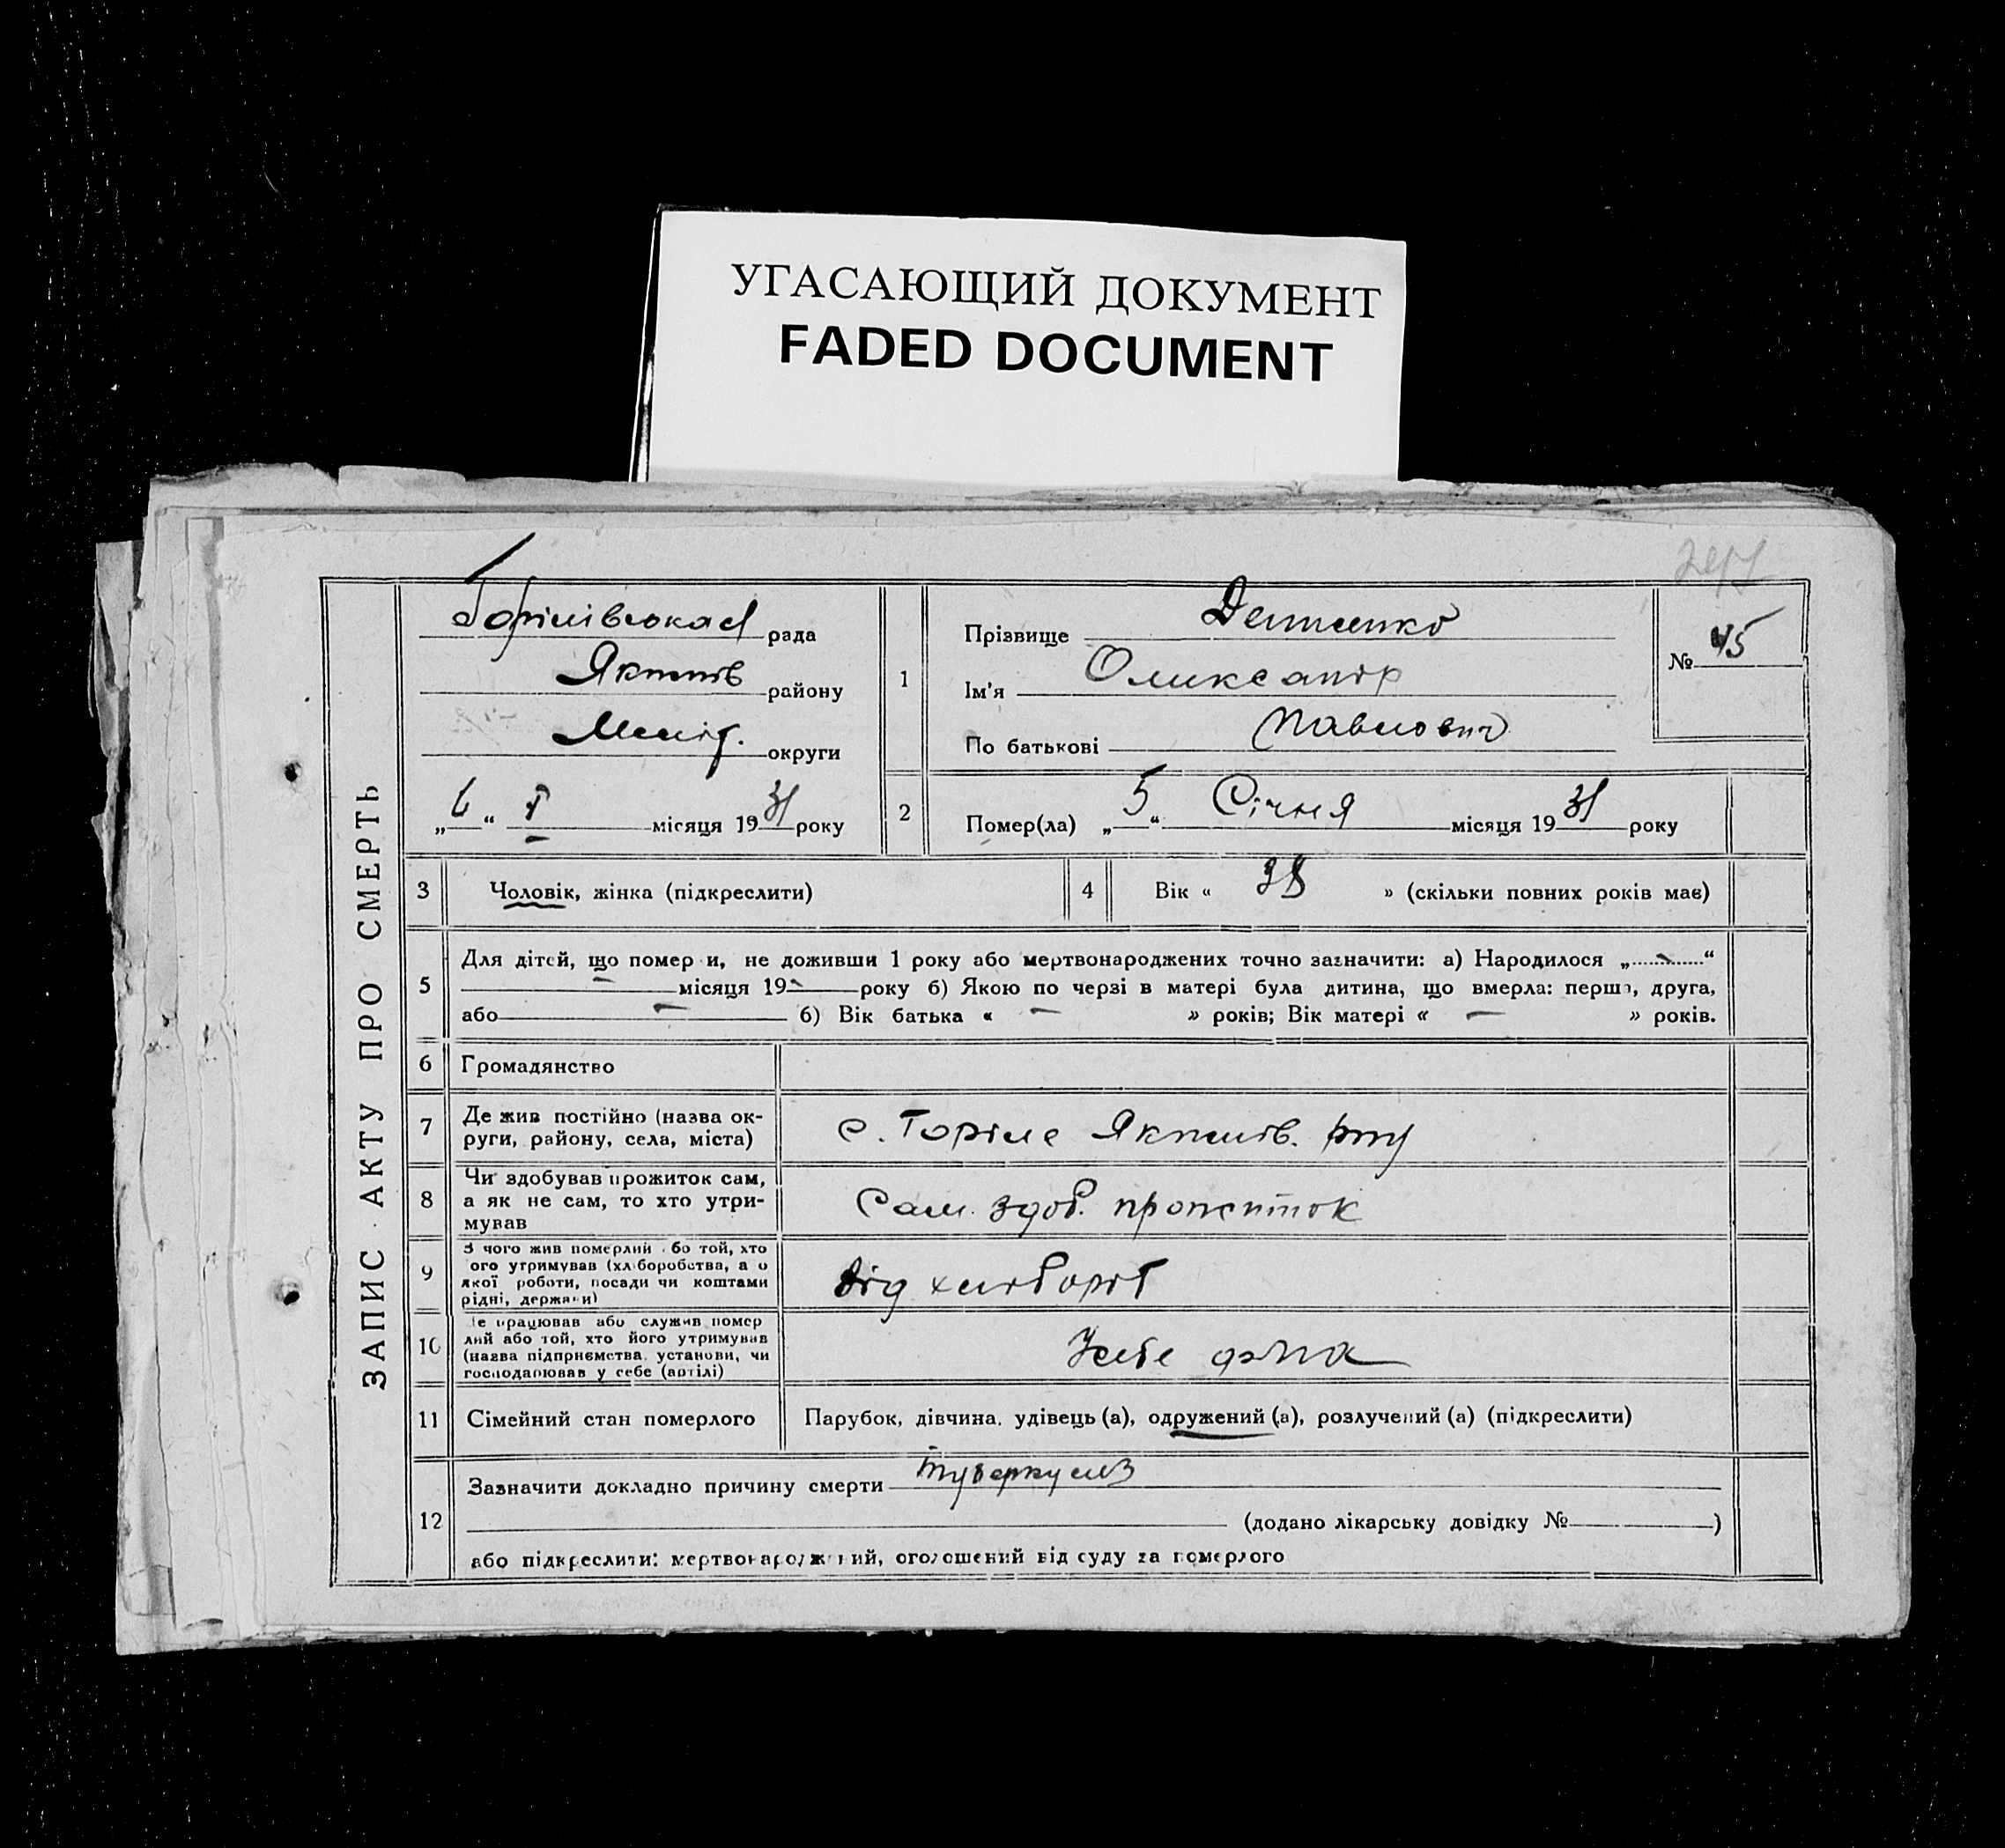 УГАСАЮЩИЙ ДОКУМЕНТ
FADED DOCUMENT
ЗАПИС АКТУ ПРО СМЕРТЬ
Горілівська рада
Якимів району
Меліт. округи
„6“ I місяця 1931 року
1
Прізвище
Ім'я Олександр
По батькові Павлович
№ 45
2
Помер(ла) „5“ Січня місяця 1931 року
3 Чоловік, жінка (підкреслити)
4 Вік « 38 » (скільки повних років має)
5
Для дітей, що помер и, не доживши 1 року або мертвонароджених точно зазначити: а) Народилося „-“
- місяця 19- року б) Якою по черзі в матері була дитина, що вмерла: перша, друга,
або - б) Вік батька « - » років; Вік матері « - » років.
6 Громадянство
7
Де жив постійно (назва ок-
руги, району, села, міста)
с. Горіле Якимів. р-ну
8
Чи здобував прожиток сам,
а як не сам, то хто утри-
мував
Сам здоб. прожиток
9
З чого жив померлий або той, хто
його утримував (хліборобства, а о
якої роботи, посади чи коштами
рідні, держави)
від хлібороб
10
Де працював або служив помер
лий або той, хто його утримував
(назва підприємства, установи, чи
господарював у себе (артілі)
11 Сімейний стан померлого
Парубок, дівчина, удівець (а), одружений (а), розлучений (а) (підкреслити)
12
Зазначити докладно причину смерти туберкульз
(додано лікарську довідку № )
або підкреслити: мертвонароджений, оголошений від суду за померлого